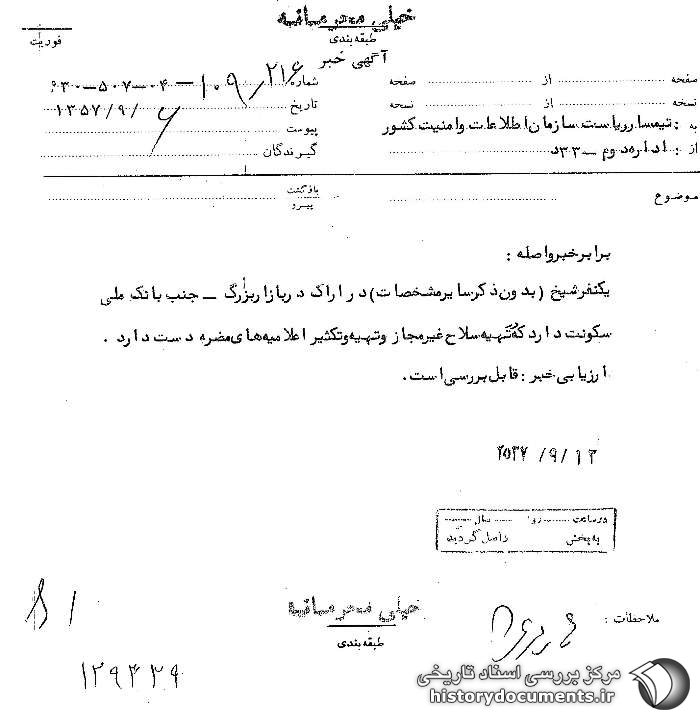 خیلی محرمانه
طبقه‌بندی
فوریت
آگهی خبر
صفحه ............ از ............ صفحه
شماره ۲۱۶/۱۰۹-۰۴-۵۰۷-۶۳۰
نسخه ............ از ............ نسخه
تاریخ ۱۳۵۷/۹/۶
به : تیمسار ریاست سازمان اطلاعات و امنیت کشور
پیوست
از : اداره دوم – ۳۳د
گیرندگان
موضوع
بازگشت
پیرو
برابر خبر واصله :
یکنفر شیخ (بدون ذکر سایر مشخصات) در اراک در بازار بزرگ – جنب بانک ملی
سکونت دارد که تهیه سلاح غیرمجاز و تهیه و تکثیر اعلامیه‌های مضره دست دارد .
ارزیابی خبر : قابل بررسی است .
۲۵۳۷/۹/۱۲
در ساعت ........ روز ........ سال ........
به بخش واصل گردید
خیلی محرمانه
طبقه‌بندی
ملاحظات :
۱۲۹۴۲۹
مرکز بررسی اسناد تاریخی
historydocuments.ir